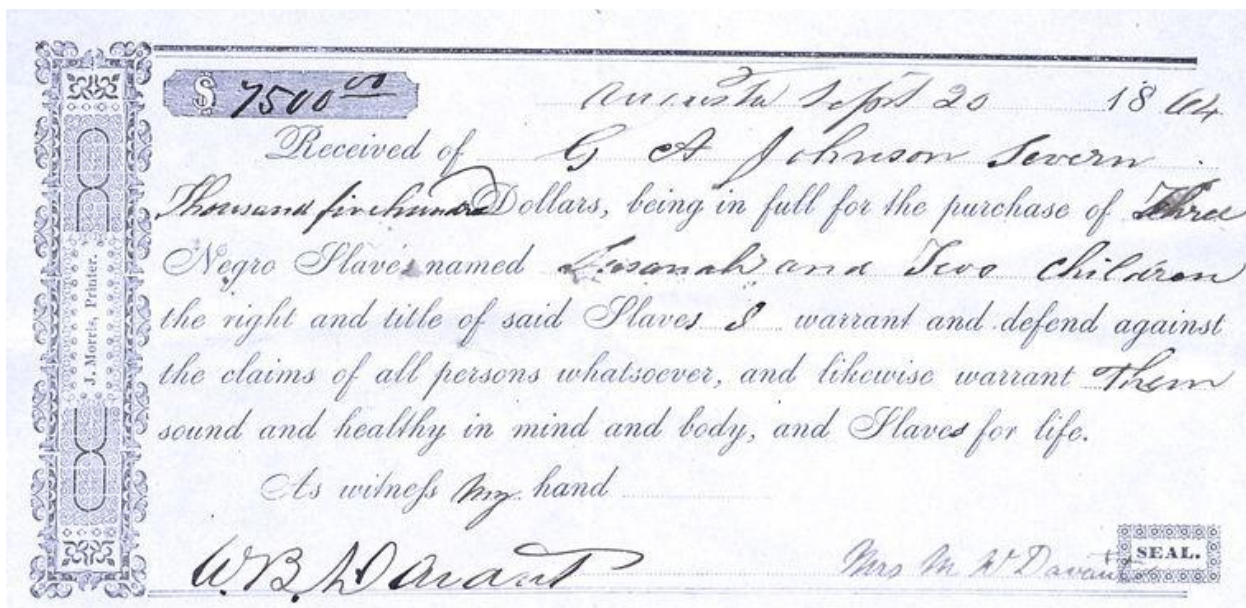 $ 7500 00
Augusta Sept 20 1864
Received of G A Johnson Severn
Thousand five hundred Dollars, being in full for the purchase of Three
Negro Slaves named Susanah and Two Children
the right and title of said Slaves I warrant and defend against
the claims of all persons whatsoever, and likewise warrant Them
sound and healthy in mind and body, and Slaves for life.
As witness my hand
W. B. Davant
Mrs M W Davant
SEAL.
J. Morris, Printer.